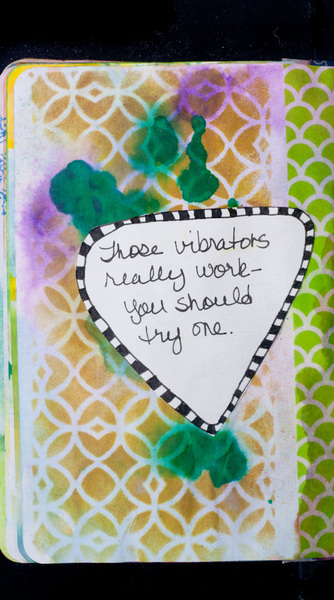 Those vibrators
really work-
you should
try one.